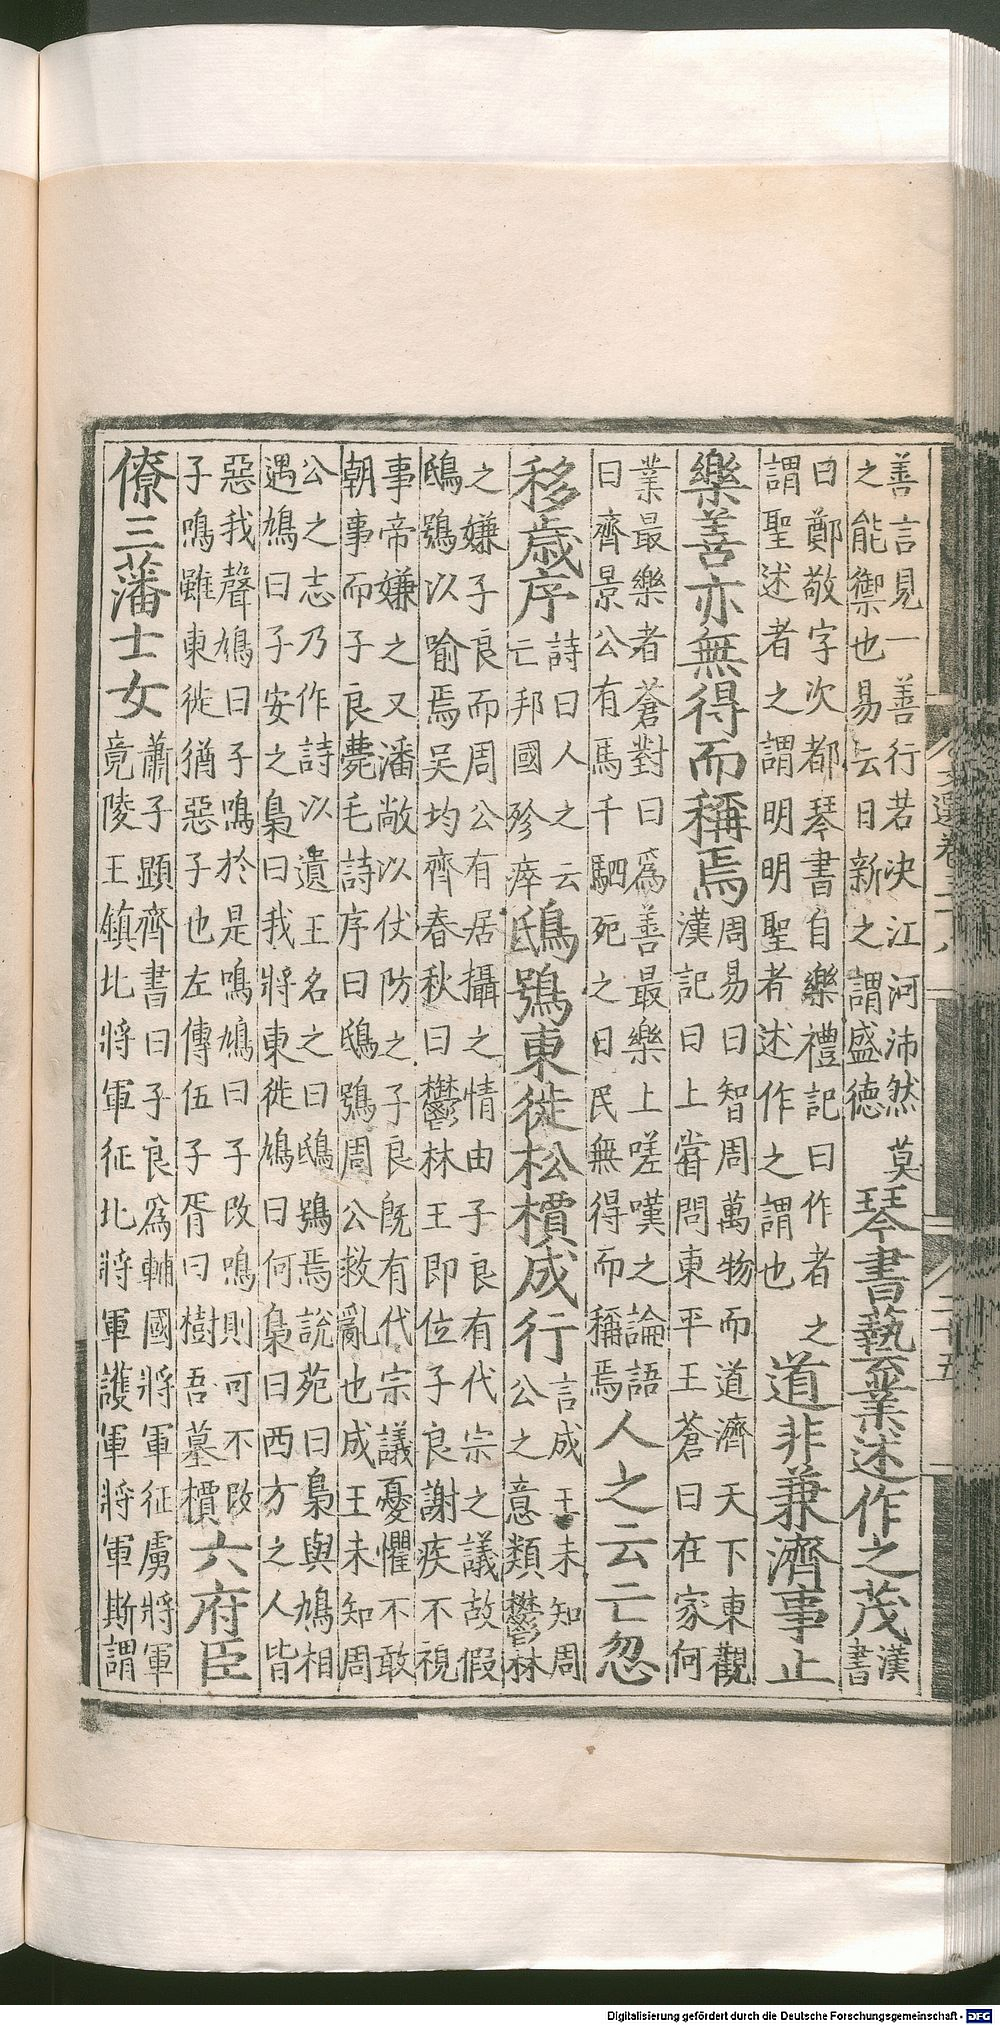 善言見一善行若决江河沛然莫
之能禦也易云日新之謂盛德
琴書藝業述作之茂
漢
書
曰鄭敬字次都琴書自樂禮記曰作者之
謂聖述者之謂明明聖者述作之謂也
道非兼濟事止
樂善亦無得而稱焉
周易曰智周萬物而道濟天下東觀
漢記曰上甞問東平王蒼曰在家何
業最樂者蒼對曰爲善最樂上嗟嘆之論語
曰齊景公有馬千駟死之日民無得而稱焉
人之云亡忽
移歲序
詩曰人之云
亡邦國殄瘁
鴟鴞東徙松檟成行
言成王未知周
公之意類鬱林
之嫌子良而周公有居攝之情由子良有代宗之議故假
鴟鴞以喻焉吳均齊春秋曰鬱林王即位子良謝疾不視
事帝嫌之又潘敞以仗防之子良既有代宗議憂懼不敢
朝事而子良薨毛詩序曰鴟鴞周公救亂也成王未知周
公之志乃作詩以遺王名之曰鴟鴞焉說苑曰梟與鳩相
遇鳩曰子安之梟曰我將東徙鳩曰何梟曰西方之人皆
惡我聲鳩曰子鳴於是鳴鳩曰子改鳴則可不改
子鳴雖東徙猶惡子也左傳伍子胥曰樹吾墓檟
六府臣
僚三藩士女
蕭子顯齊書曰子良爲輔國將軍征虜將軍
竟陵王鎮北將軍征北將軍護軍將軍斯謂
Digitalisierung gefördert durch die Deutsche Forschungsgemeinschaft - DFG